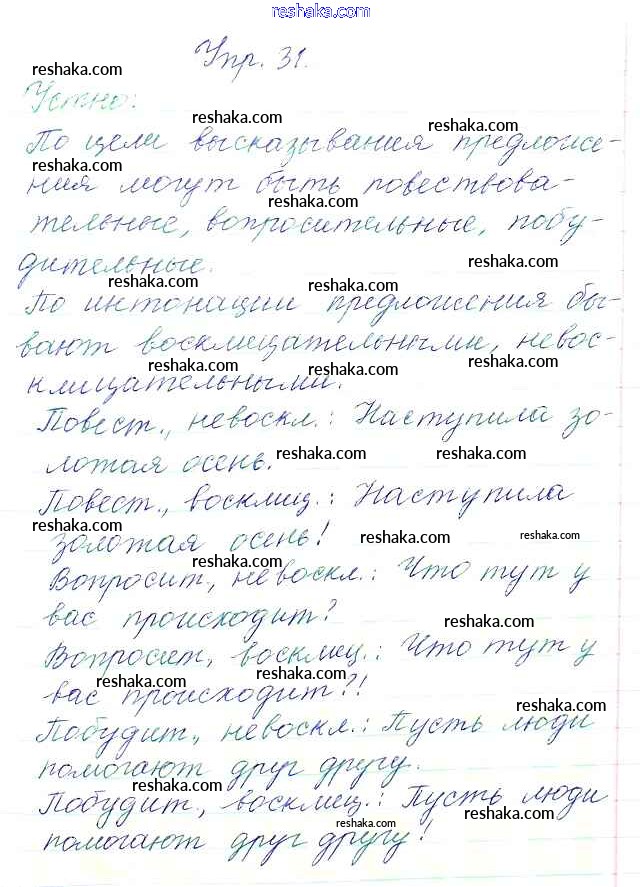 reshaka.com
Упр. 31.
reshaka.com
Устно:
reshaka.com
reshaka.com
По цели высказывания предложе-
reshaka.com
ния могут быть повествова-
reshaka.com
тельные, вопросительные, побу-
дительные.
reshaka.com
reshaka.com
reshaka.com
По интонации предложения бы-
вают восклицательными, невос-
reshaka.com
reshaka.com
reshaka.com
клицательными.
Повест., невоскл.: Наступила зо-
reshaka.com
reshaka.com
лотая осень.
Повест., восклиц.: Наступила
reshaka.com
reshaka.com
reshaka.com
золотая осень!
Вопросит., невоскл.: Что тут у
вас происходит?
reshaka.com
Вопросит., восклиц.: Что тут у
reshaka.com
reshaka.com
вас происходит?!
reshaka.com
Побудит., невоскл.: Пусть люди
помогают друг другу.
reshaka.com
Побудит., восклиц.: Пусть люди
reshaka.com
reshaka.com
помогают друг другу!